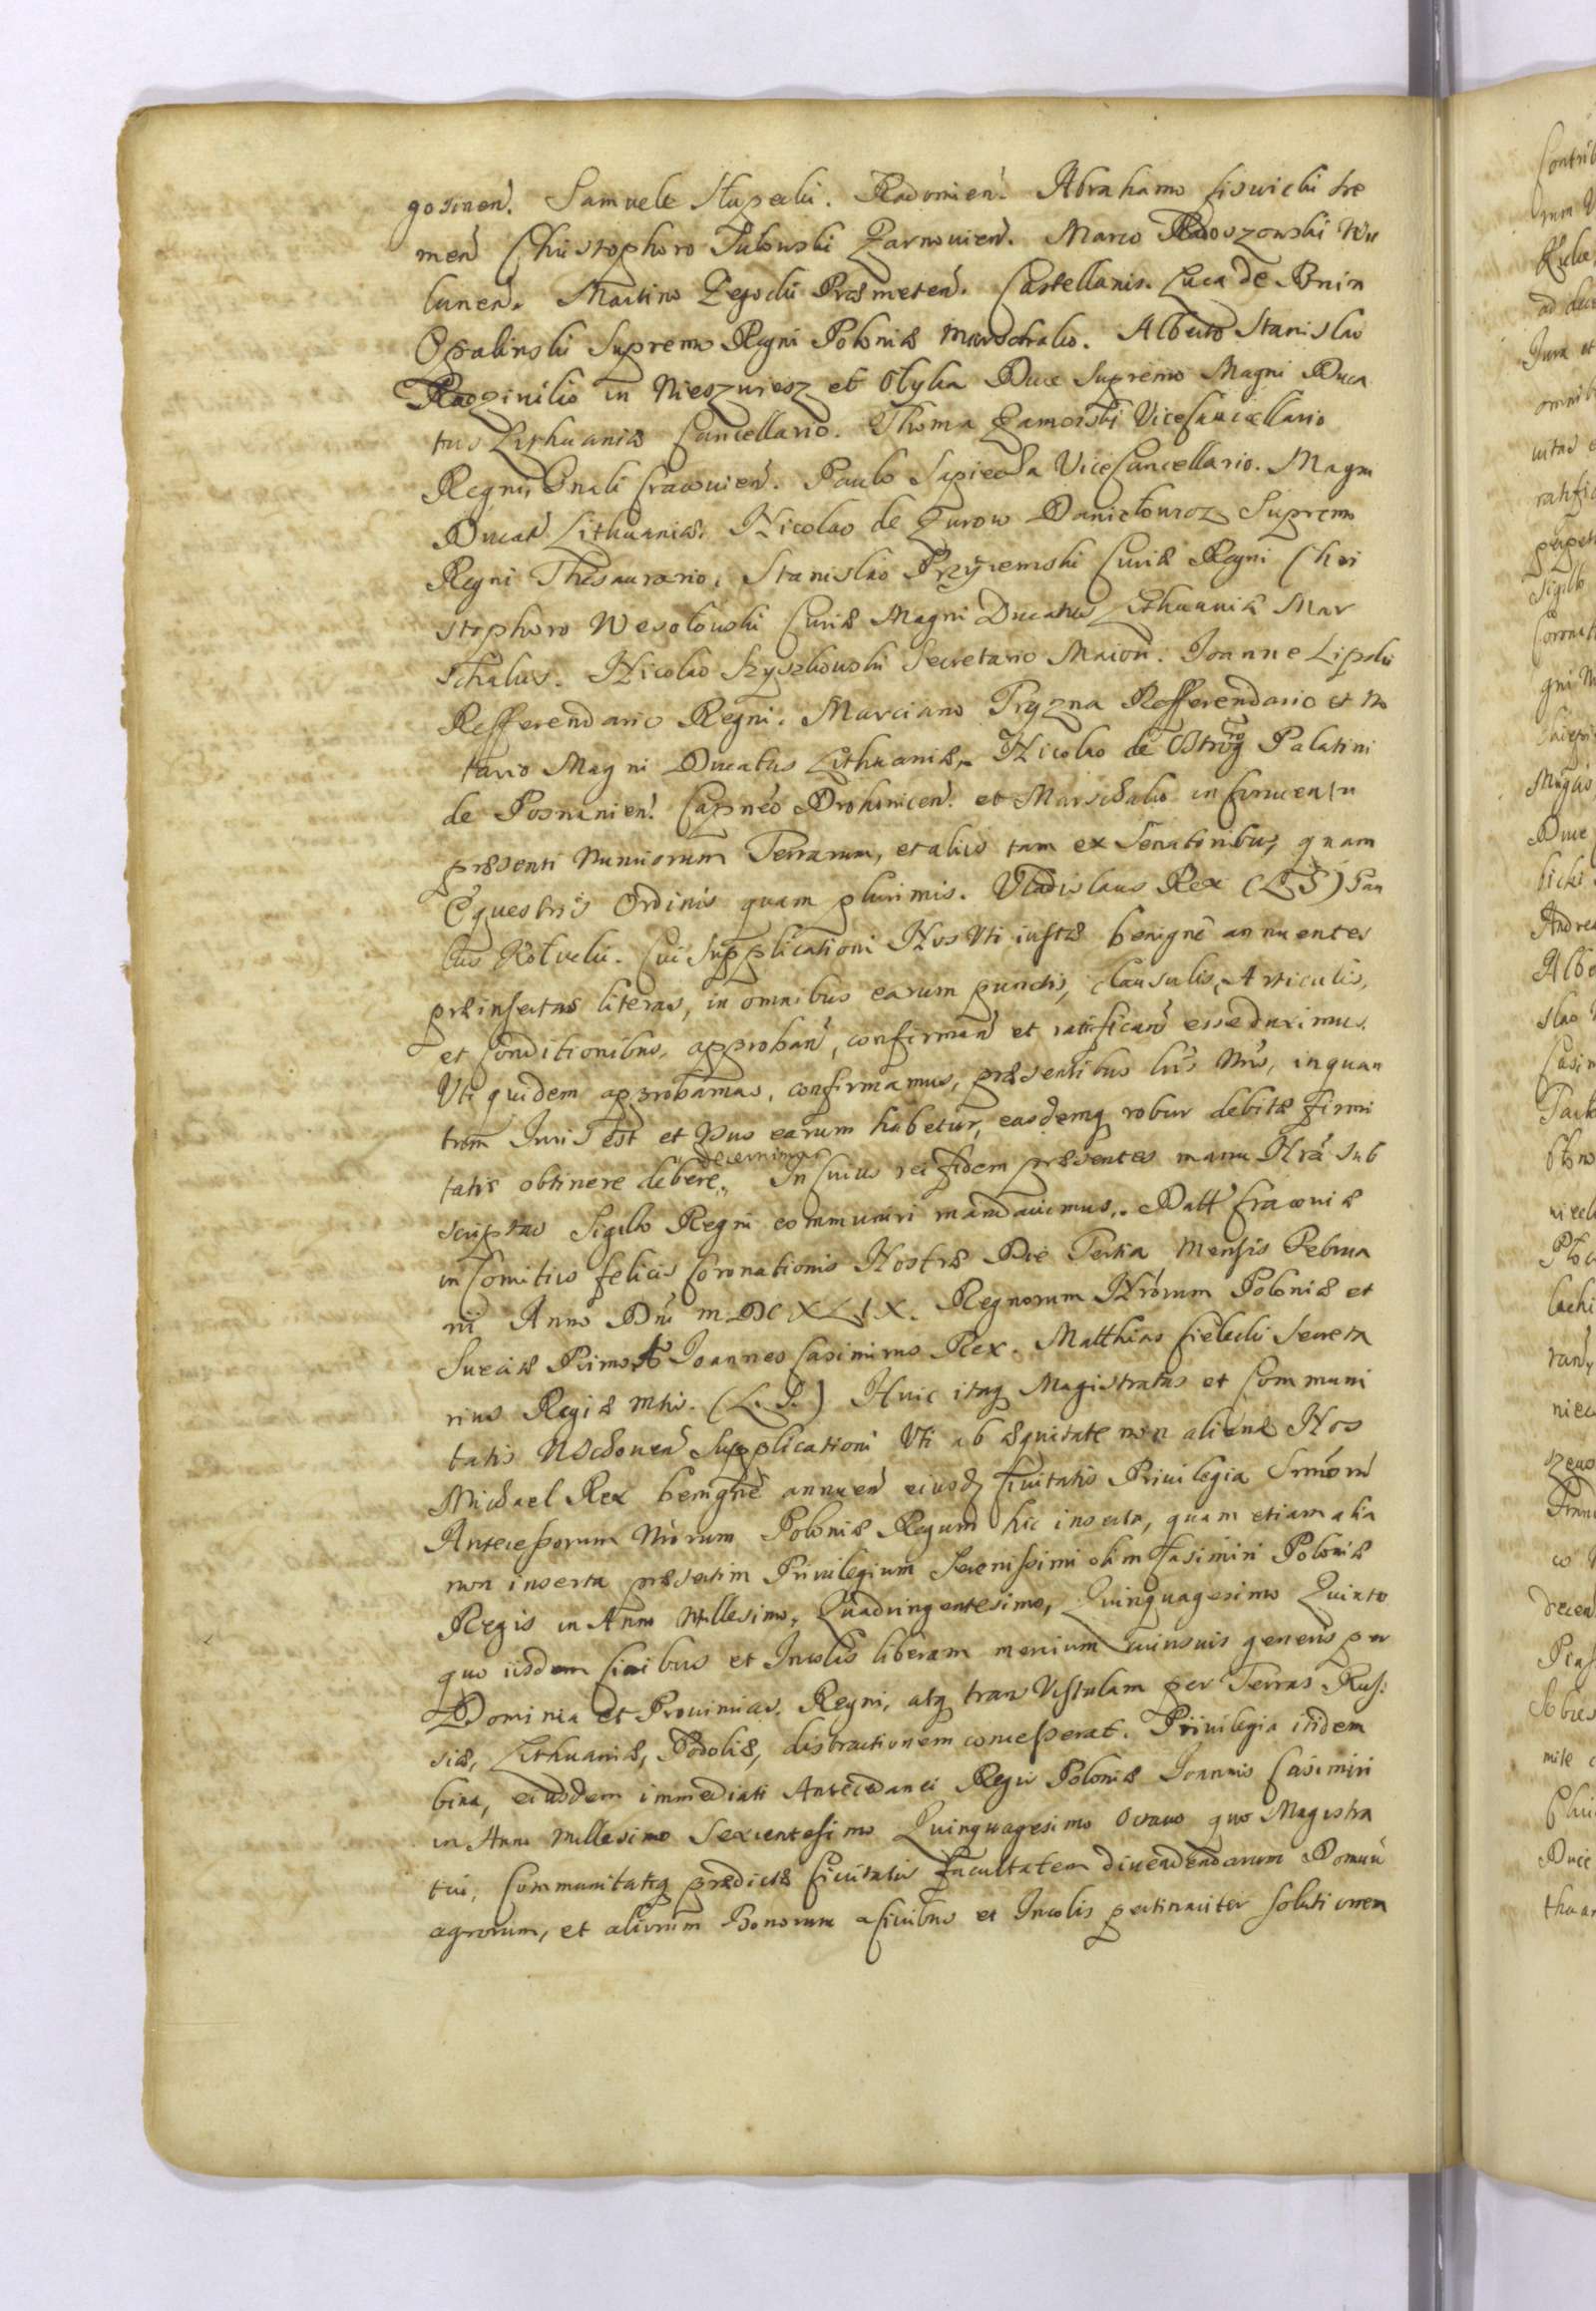 gostinen. Samuele Słupecki. Radomien. Abrahamo Ciświcki Sre
men Christophoro Sułowski Żarnowien. Marco Radoszowski Wie
lunen. Martino Żegocki Præmeten. Castellanis. Luca de Bnin
Opalinski Supremo Regni Poloniæ Marschalco. Alberto Stanislao
Radzivilio in Nieszwiesz et Ołyka Duce Supremo Magni Duca
tus Lithuaniæ Cancellario. Thoma Zamoiski ViceCancellario
Regni, Gnali Cracouien. Paulo Sapiecha ViceCancellario. Magni
Ducat Lithuaniæ. Nicolao de Żurow Daniełowicz Supremo
Regni Thesaurario, Stanislao Przyiemski Curiæ Regni Chri
stophoro Wesołowski Curiæ Magni Ducatus Lithuaniæ Mar
schalcis. Nicolao Szyszkowski Secretario Maiori. Joanne Lipski
Refferendario Regni. Marciano Tryzna Refferendario et No
tario Magni Ducatus Lithuaniæ. Nicolao de Ostrorog Palatini
de Posnanien. Capneo Drohinicen. et Marschalco in Conuentu
præsenti Nunciorum Terrarum, et aliis tam ex Senatoribus, quam
Equestris Ordinis quam plurimis. Vladislaus Rex (LS) Pau
lus Kołucki. Cui Supplicationi Nos Uti iustæ benigne annuentes
præinsertas literas, in omnibus earum punctis, Clausulis, Articulis,
et Conditionibus, approban, confirman et ratifican esse duximus.
Uti quidem approbamus, confirmamus, præsentibus lris Nris, inquan
tum Juris est et Usus earum habetur, easdemq robur debitæ firmi
tatis obtinere debere decernimus. In Cuius rei fidem præsentes manu Nra Sub
scriptas Sigillo Regni communiri mandauimus. Datt Cracouiæ
in Comitiis felicis Coronationis Nostræ Die Tertia Mensis Februa
rii Anno Dni MDCXLIX. Regnorum Nrorum Poloniæ et
Sueciæ Primo Ao Joannes Casimirus Rex. Matthias Cielecki Secreta
rius Regiæ Mtis. (L.S.) Huic itaq Magistratus et Communi
tatis Wschouen Supplicationi Uti ab æquitate non alienæ Nos
Michael Rex benigne annuen eiusdz Ciuitatis Privilegia Srmorum
Antecessorum Nrorum Poloniæ Regum hic inserta, quam etiam alia
non inserta præsertim Privilegium Serenissimi olim Casimiri Poloniæ
Regis in Anno Millesimo, Quadringentesimo, Quinquagesimo Quinto
quo iisdem Ciuibus et Incolis liberam mercium cuiusuis generis per
Dominia et Prouincias. Regni, atq trans Vistulam per Terras Rus:
siæ, Lithuaniæ, Podoliæ, distractionem concesserat. Privilegia itidem
bina, eiusdem immediati Antecedanei Regis Poloniæ Joannis Casimiri
in Anno Millesimo Sexcentesimo Quinquagesimo Octauo quo Magistra
tui, Communitatiq prædictæ Ciuitatis facultatem diuendendarum Domuu
agrorum, et aliorum Bonorum a Ciuibus et Incolis pertinaciter solutionem